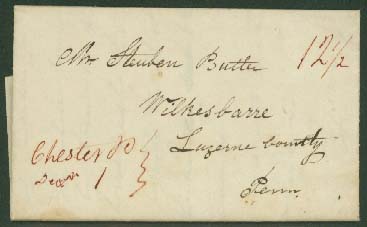 Mr Steuben Butler 12½
Wilkesbarre
Luzerne County
Penn
Chester
1